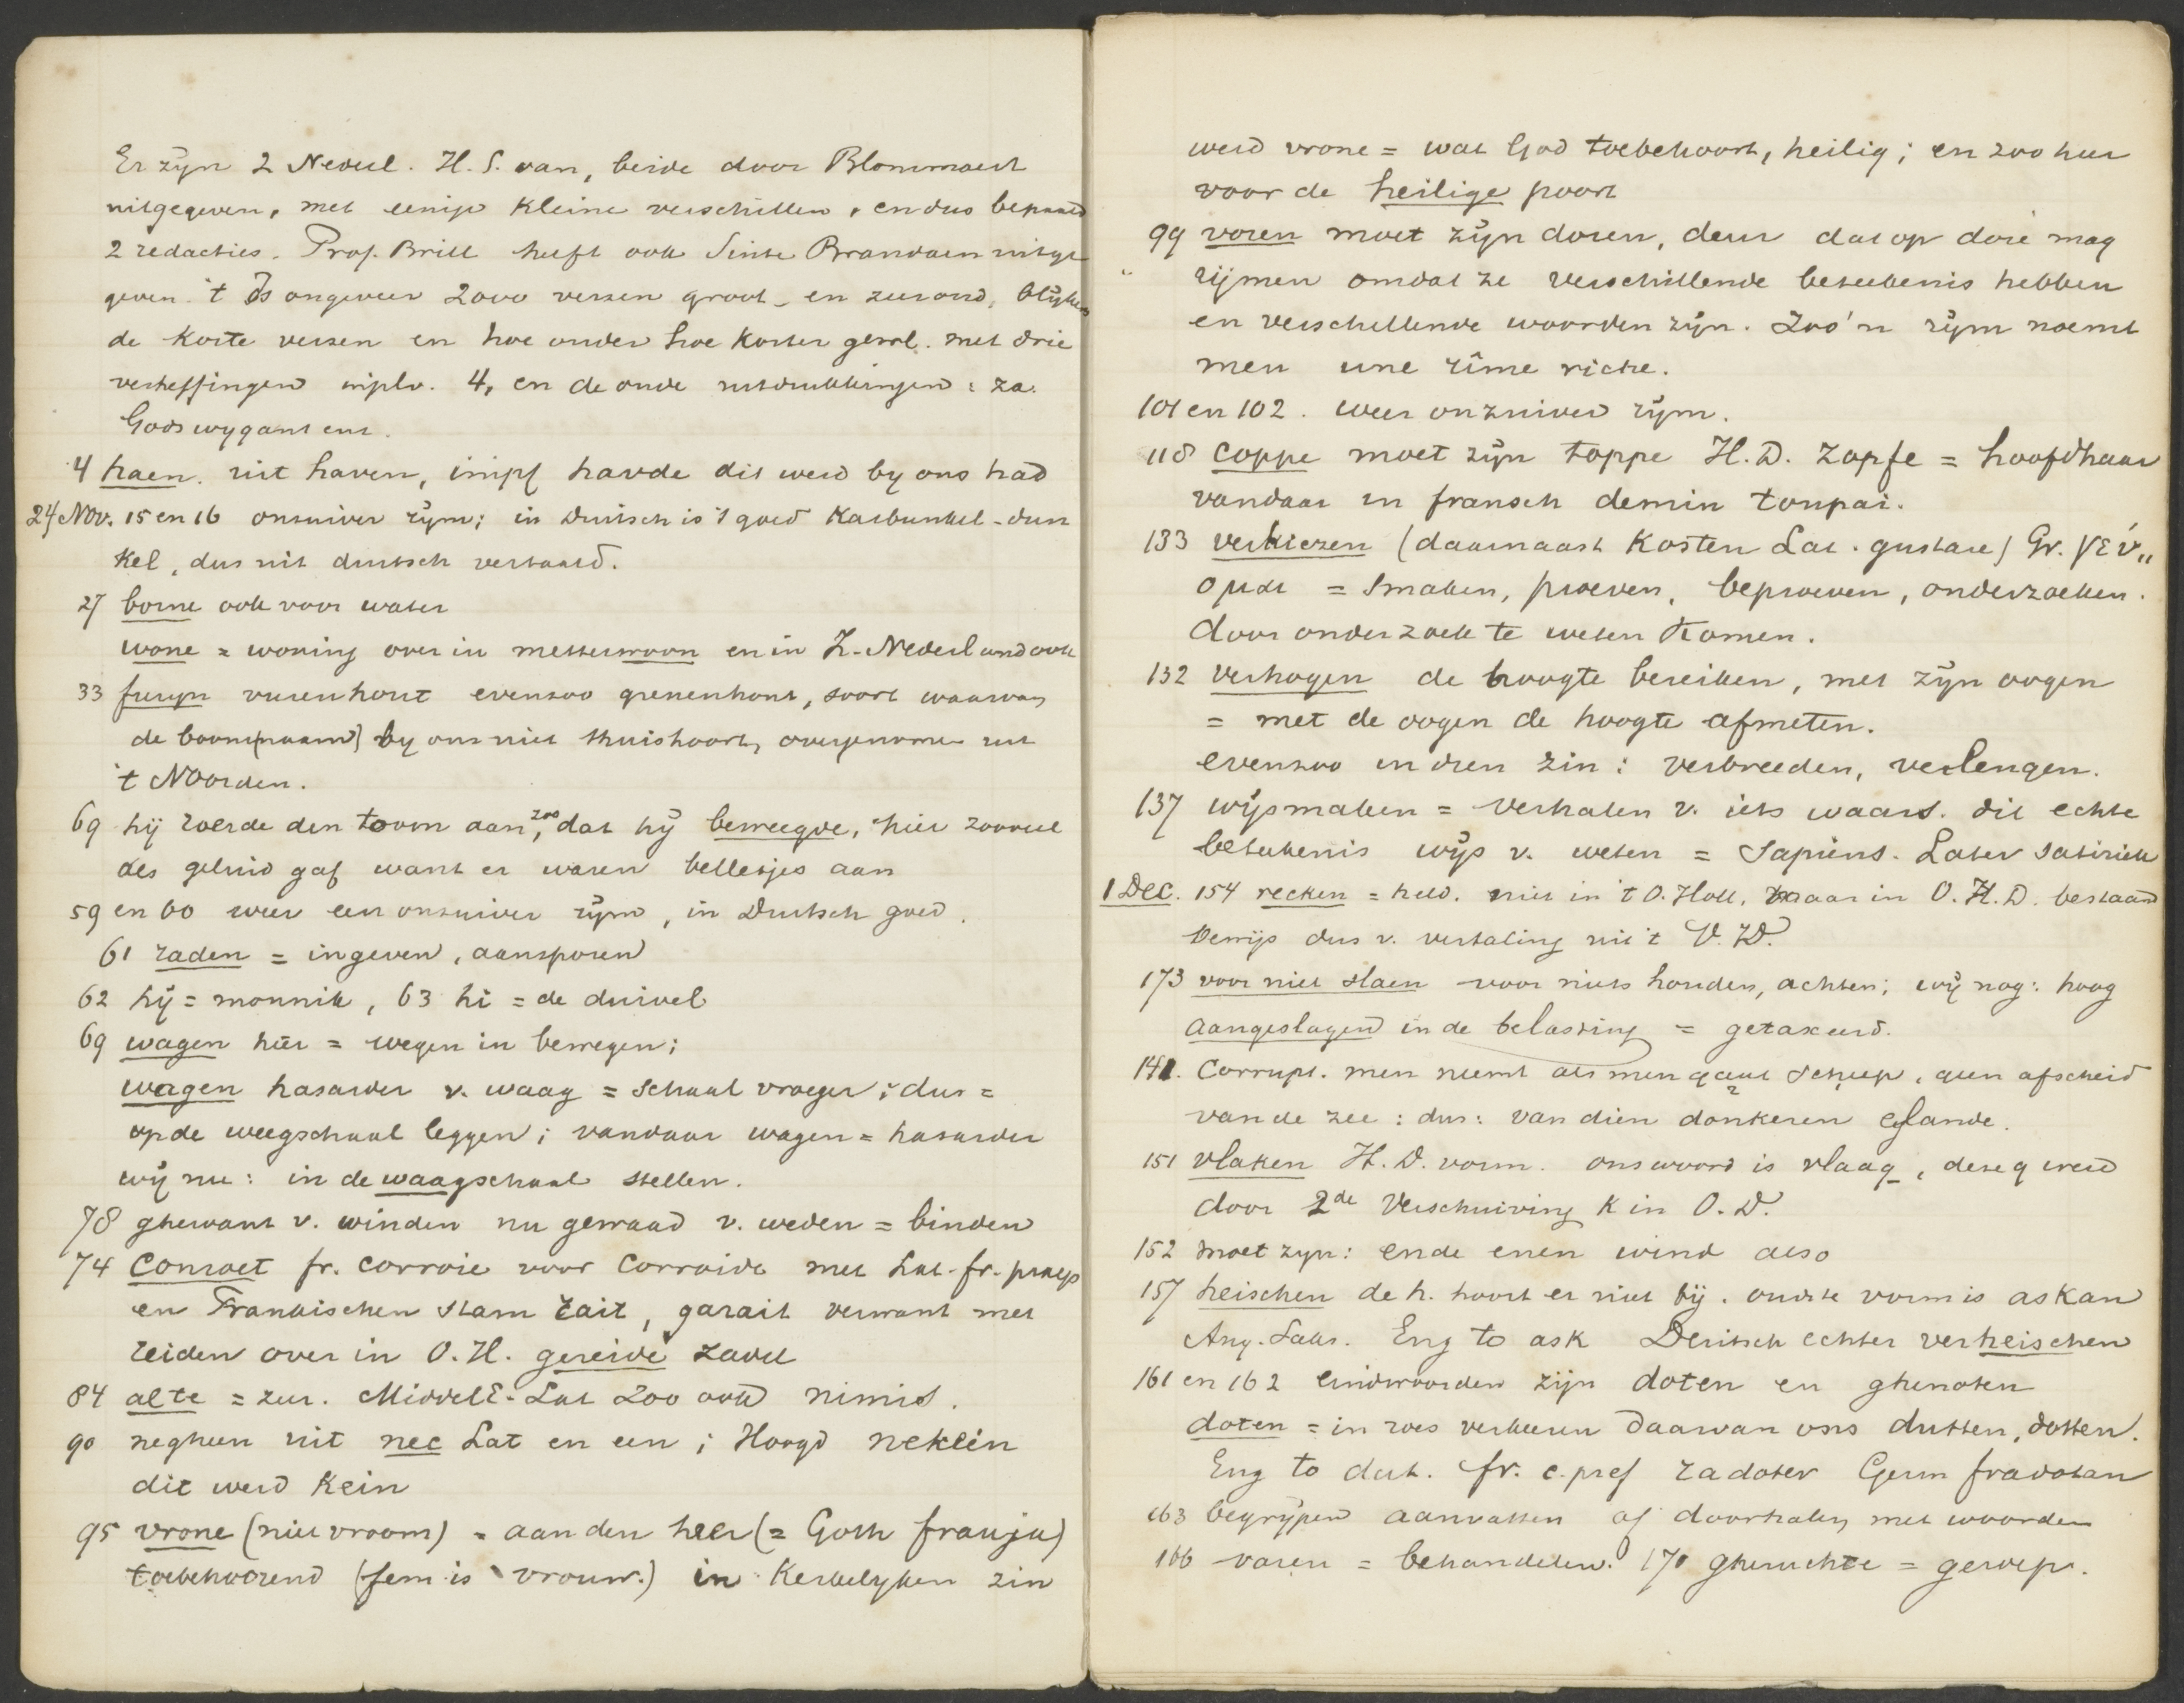 Er zijn 2 Nederl. H.S. van, beide door Blommaert
uitgegeven, met eenige kleine verschillen, en dus bepaald
2 redacties. Prof. Brill heeft ook Sinte Brandaen uitge
geven. 't Is ongeveer 2000 verzen groot en zeer oud, blijkens
de korte verzen en hoe ouder hoe korter gew. met drie
verheffingen inplv. 4, en de oude uitdrukkingen: za.
Gods wygant enz.
4 haen. uit haven, impf havde dit werd by ons had
24 Nov. 15 en 16 onzuiver rijm; in Duitsch is 't goed Karbunkel-dun
kel, dus uit duitsch vertaald.
27 borne ook voor water
wone = woning over in metterwoon en in Z.-Nederland ook
33 furyn vurenhout evenzoo grenenhout, soort waarvan
de boom(naam) by ons niet thuishoort, overgenomen uit
't Noorden.
69 hij roerde den toom aan, zoo dat hij beweegde, hier zooveel
als geluid gaf want er waren belletjes aan
59 en 60 weer een onzuiver rijm, in Duitsch goed.
61 raden = ingeven, aansporen
62 hij = monnik, 63 hi = de duivel
69 wagen hier = wegen in bewegen;
wagen hasarder v. waag = schaal vroeger; dus =
op de weegschaal leggen; vandaar wagen = hasarder
wij nu: in de waagschaal stellen.
78 ghewant v. winden nu gewaad v. weden = binden
74 Conroet fr. corroie voor Corroide met Lat-fr. praep
en Frankischen stam rait, garait verwant met
reiden over in O.H. gereide zadel
84 alte = zeer. Middele-Lat zoo ook nimis.
90 negheen uit nec Lat en een; Hoogd nekein
dit werd Kein
95 vrone (niet vroom) = aan den heer (= Goth frauja)
toebehoorend (fem is vrouw.) in Kerkelyken zin
werd vrone = wat God toebehoort, heilig; en zoo hier
voor de heilige poort
99 voren moet zijn doren, deur dat op dore mag
rijmen omdat ze verschillende beteekenis hebben
en verschillende woorden zijn. Zoo'n rijm noemt
men une rîme riche.
101 en 102. weer onzuiver rijm.
118 coppe moet zijn toppe H.D. Zopfe = hoofdhaar
vandaar in fransch demin toupai.
133 verkiezen (daarnaast Kosten Lat. gustare) Gr. γεύ„
ομαι = smaken, proeven, beproeven, onderzoeken.
door onderzoek te weten Komen.
132 verhogen de hoogte bereiken, met zijn oogen
= met de oogen de hoogte afmeten.
evenzoo in dien zin: verbreeden, verlengen.
137 wijsmaken = verhalen v. iets waars. dit echte
beteekenis wijs v. weten = Sapiens. Later satiriek
1 Dec. 154 recken = held. niet in 't O. Holl, maar in O.H.D. bestaand
bewijs dus v. vertaling uit 't O.D.
173 voor niet slaen voor niets houden, achten; wij nog: hoog
aangeslagen in de belasting = getaxeerd.
141. Corrupt. men neemt als men gaat scheep, geen afscheid
van de zee: dus: van dien donkeren eilande.
151 vlaken H.D. vorm. ons woord is vlaag, deze g werd
door 2de Verschuiving K in O.D.
152 moet zyn: ende enen wind also
157 heischen de h. hoort er niet bij. oudste vorm is askan
Ang. Saks. Eng to ask Deutsch echter verheischen
161 en 162 eindwoorden zijn doten en ghenoten
doten = in roes verkeeren daarvan ons dutten, dotten.
Eng to dut. fr. c. pref radoter Germ fradotan
163 begrijpen aanvatten of doorhalen met woorden
166 varen = behandelen. 170 gheruchte = geroep.